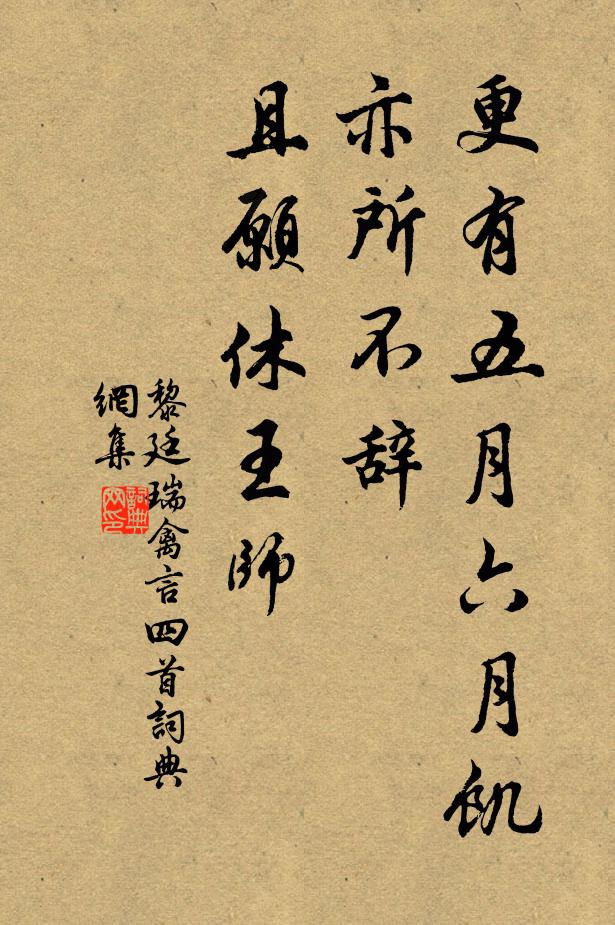 更有五月六月飢
亦所不辞
且願休王師
黎廷瑞禽言四首詞典
網集
詞典
网印